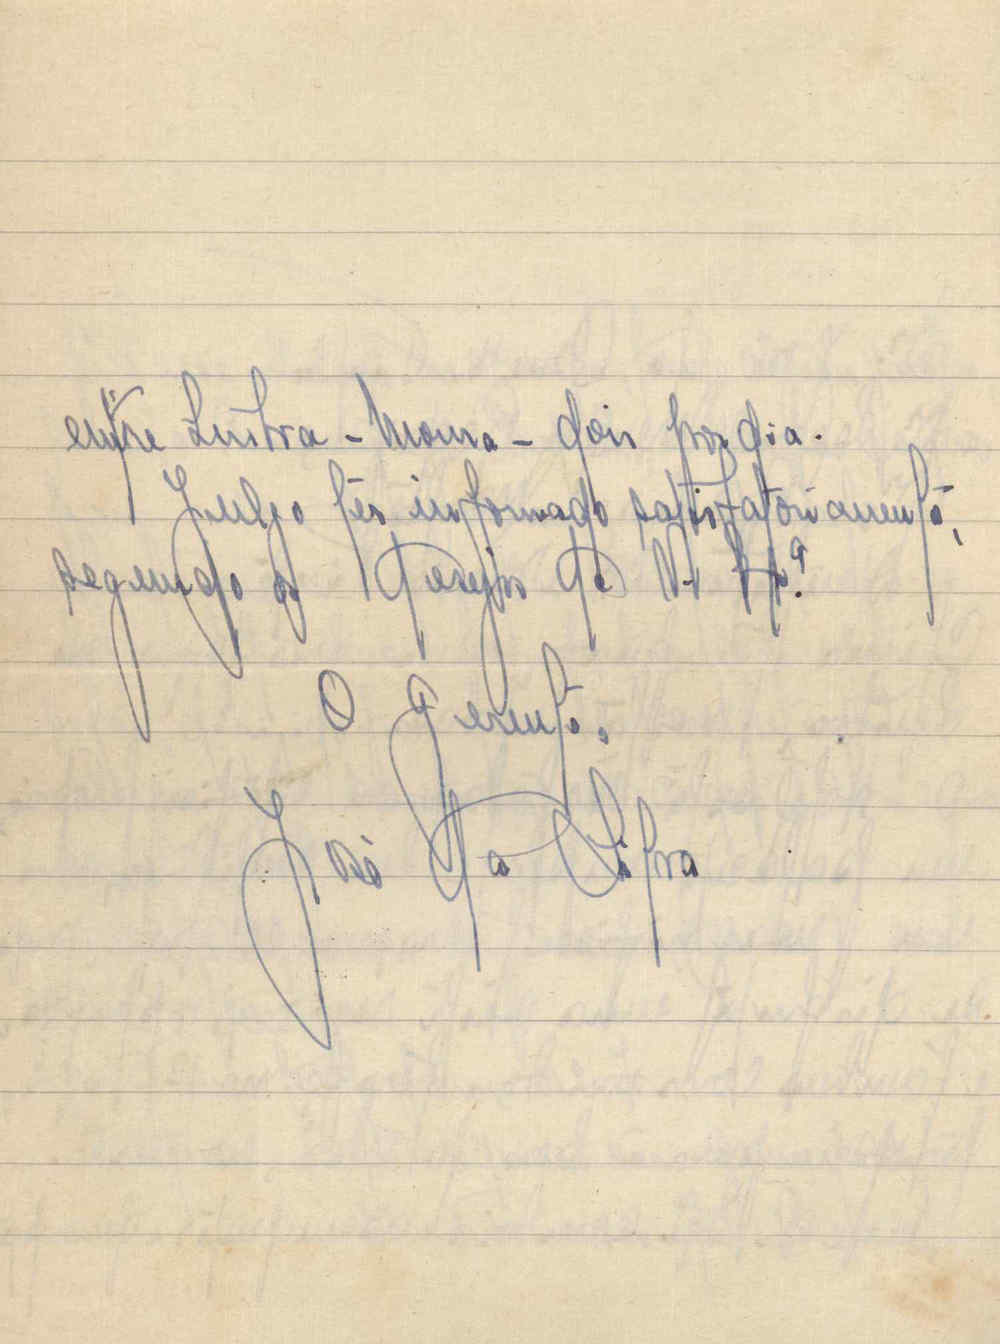 entre Sintra - Moura - dois por dia.
Julgo ter informado satisfatoriamente,
segundo os desejos de V. Ex.ª
O Gerente,
José da Silva